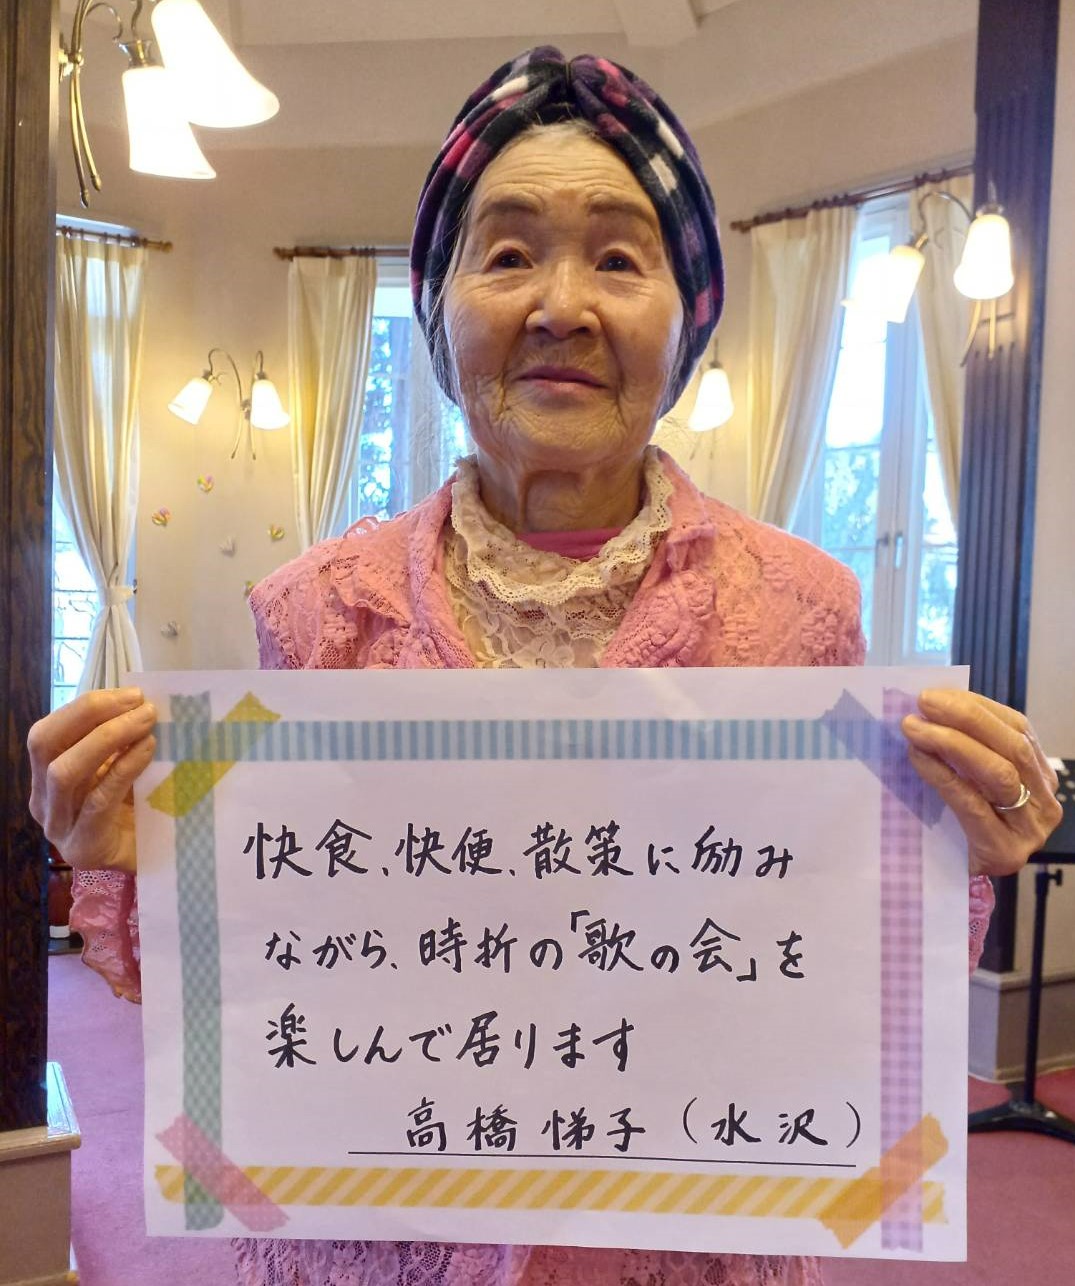 快食、快便、散策に励み
ながら、時折の「歌の会」を
楽しんで居ります
高橋悌子(水沢)